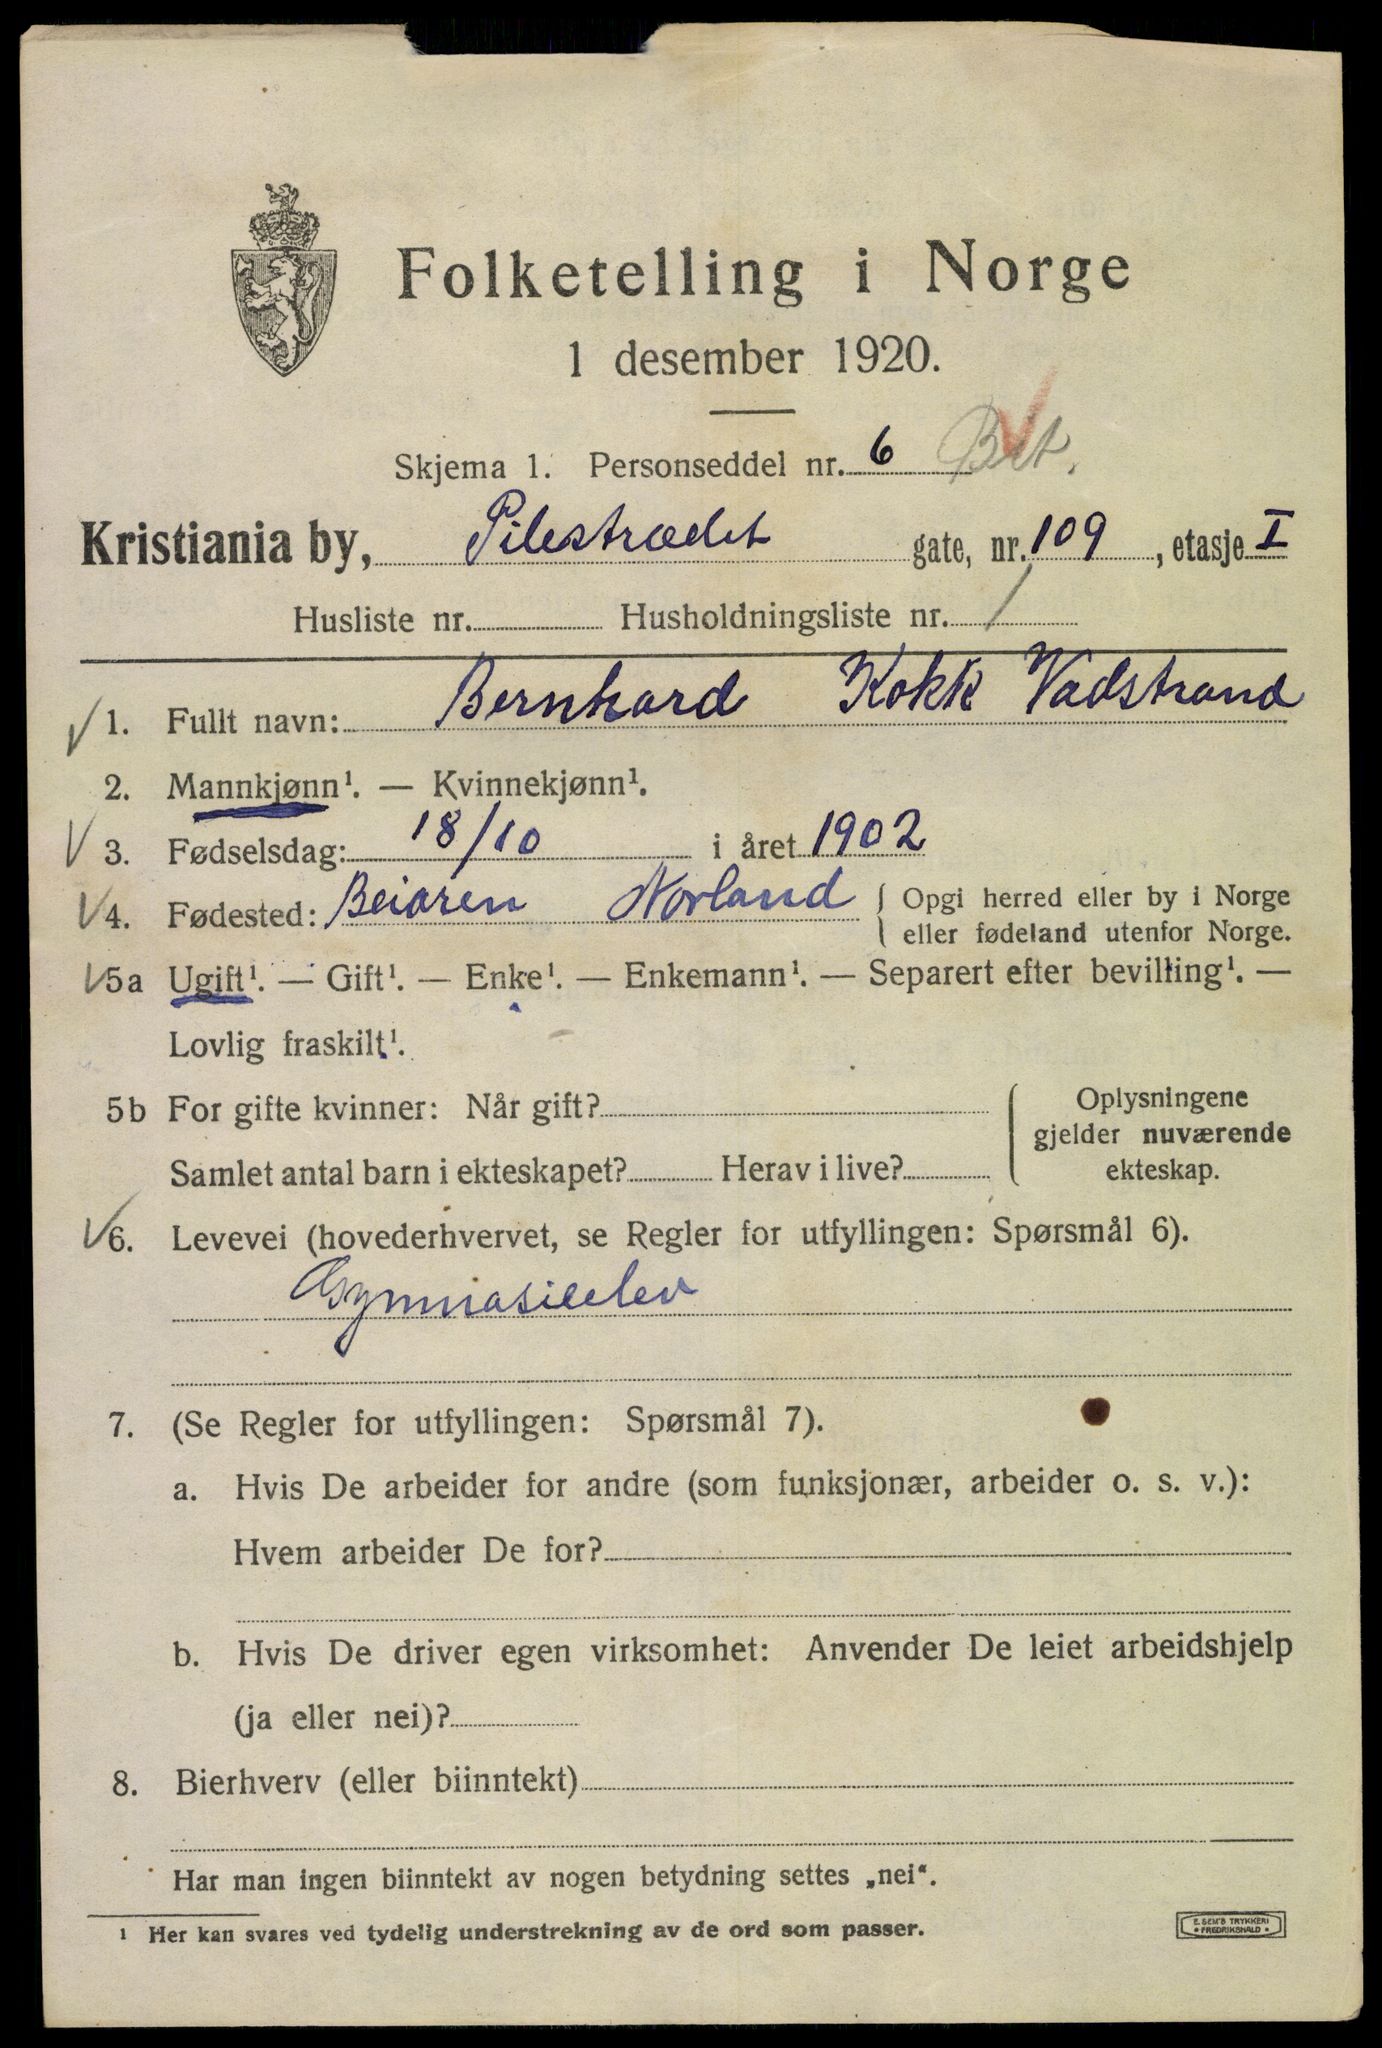 Folketelling i Norge
1 desember 1920.
Skjema 1. Personseddel nr. 6
Kristiania by, Pilestrædet gate, nr. 109, etasje I
Husliste nr. Husholdningsliste nr. 1
1. Fullt navn: Bernhard Kokk Vadstrand
2. Mannkjønn¹. — Kvinnekjønn¹.
3. Fødselsdag: 18/10 i året 1902
4. Fødested: Beiaren Norland { Opgi herred eller by i Norge
eller fødeland utenfor Norge.
5a Ugift¹. — Gift¹. — Enke¹. — Enkemann¹. — Separert efter bevilling¹. —
Lovlig fraskilt¹.
5b For gifte kvinner: Når gift?
Samlet antal barn i ekteskapet? Herav i live?
Oplysningene
gjelder nuværende
ekteskap.
6. Levevei (hovederhvervet, se Regler for utfyllingen: Spørsmål 6).
Gymnasieelev
7. (Se Regler for utfyllingen: Spørsmål 7).
a. Hvis De arbeider for andre (som funksjonær, arbeider o. s. v.):
Hvem arbeider De for?
b. Hvis De driver egen virksomhet: Anvender De leiet arbeidshjelp
(ja eller nei)?
8. Bierhverv (eller biinntekt)
Har man ingen biinntekt av nogen betydning settes „nei“.
¹ Her kan svares ved tydelig understrekning av de ord som passer.
E. SEM'S TRYKKERI
FREDRIKSHALD